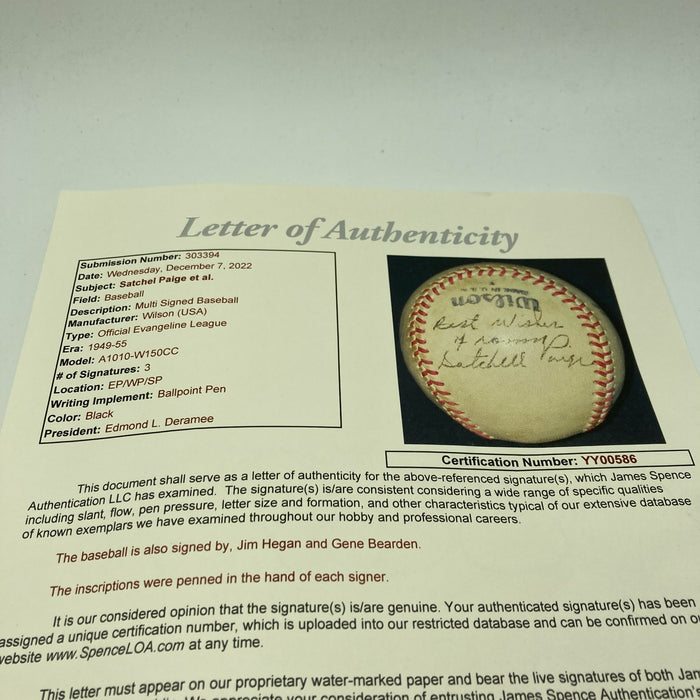 Letter of Authenticity
Submission Number: 303394
Date: Wednesday, December 7, 2022
Subject: Satchel Paige et al.
Field: Baseball
Description: Multi Signed Baseball
Manufacturer: Wilson (USA)
Type: Official Evangeline League
Era: 1949-55
Model: A1010-W150CC
# of Signatures: 3
Location: EP/WP/SP
Writing Implement: Ballpoint Pen
Color: Black
President: Edmond L. Deramee
Wilson
MADE IN U.S.A.
Best Wishes
Satchell Paige
Certification Number: YY00586
This document shall serve as a letter of authenticity for the above-referenced signature(s), which James Spence
Authentication LLC has examined. The signature(s) is/are consistent considering a wide range of specific qualities
including slant, flow, pen pressure, letter size and formation, and other characteristics typical of our extensive database
of known exemplars we have examined throughout our hobby and professional careers.
The baseball is also signed by, Jim Hegan and Gene Bearden.
The inscriptions were penned in the hand of each signer.
It is our considered opinion that the signature(s) is/are genuine. Your authenticated signature(s) has been
assigned a unique certification number, which is uploaded into our restricted database and can be confirmed on ou
website www.SpenceLOA.com at any time.
This letter must appear on our proprietary water-marked paper and bear the live signatures of both Jam
We appreciate your consideration of entrusting James Spence Authentication